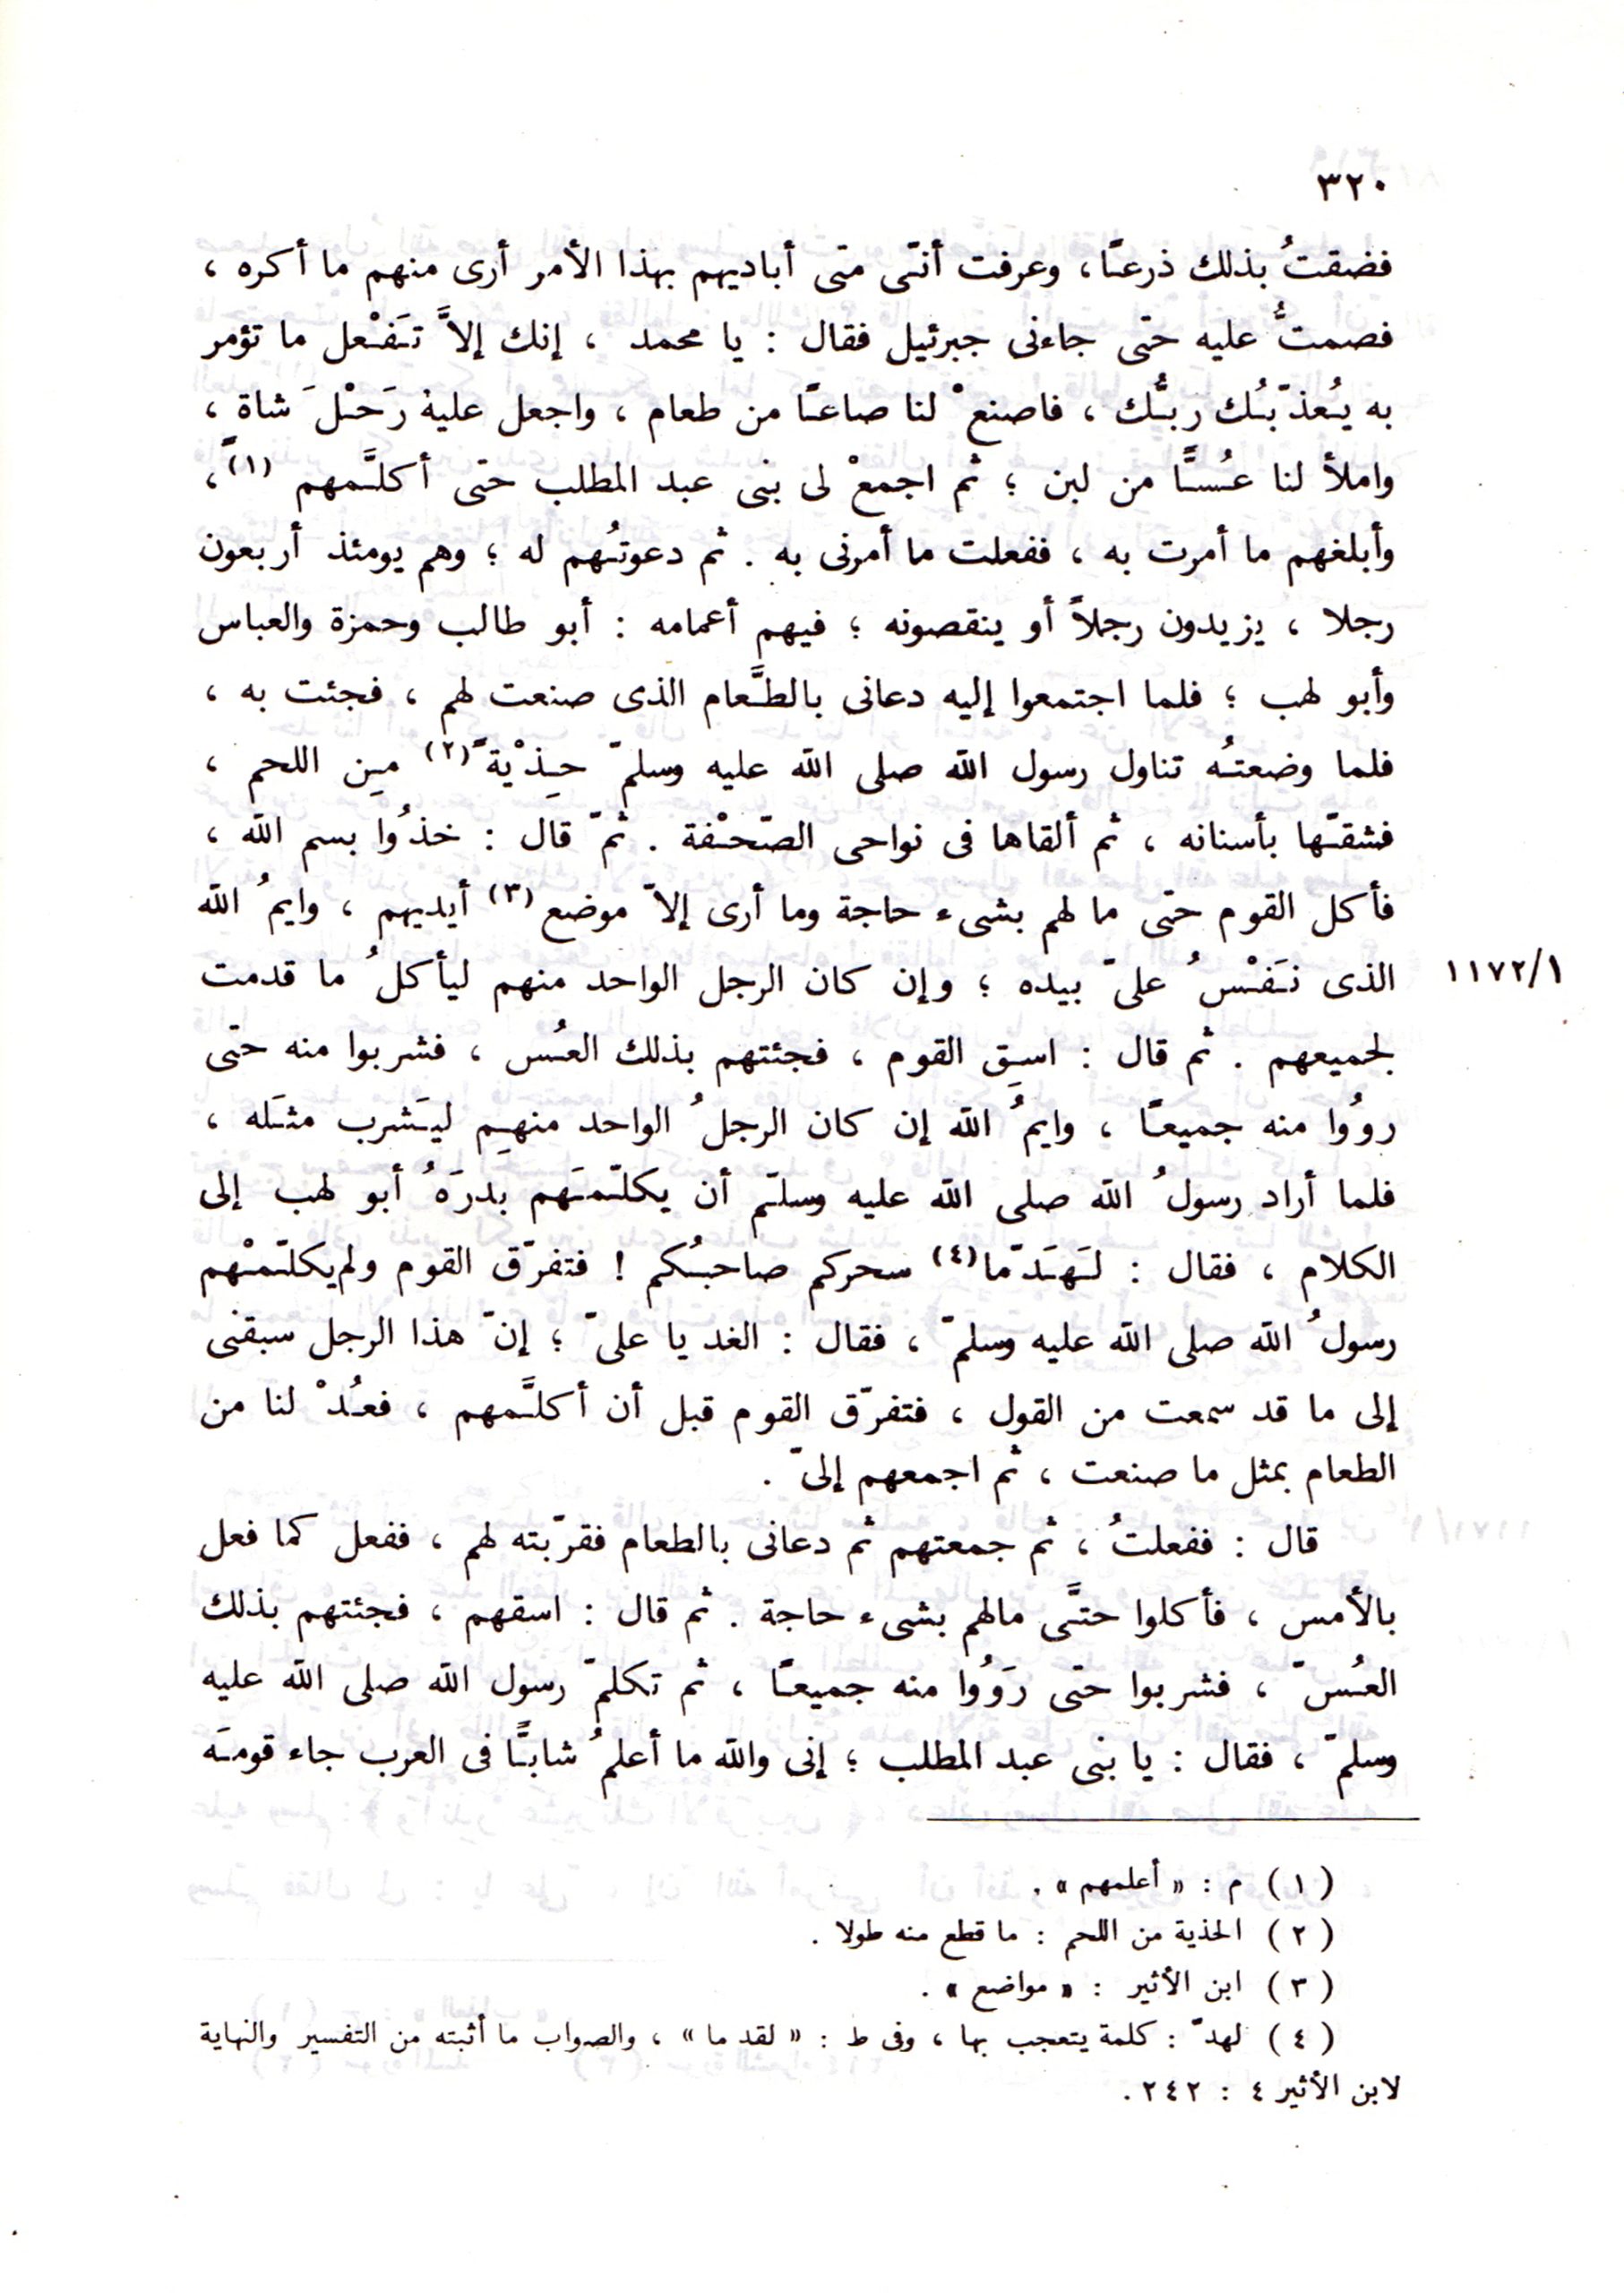 ٣٢٠
فضقتُ بذلك ذرعًا، وعرفت أنّى متى أباديهم بهذا الأمر أرى منهم ما أكره ،
فصمتُّ عليه حتى جاءنى جبرئيل فقال : يا محمد ، إنك إلاَّ تَفْعل ما تؤمر
به يُعذّبُك ربُّك ، فاصنعْ لنا صاعًا من طعام ، واجعل عليه رَحْلَ شاة ،
واملأ لنا عُسًّا من لبن ؛ ثم اجمعْ لى بنى عبد المطلب حتى أكلَّمهم (١) ،
وأبلغهم ما أمرت به ، ففعلت ما أمرنى به . ثم دعوتُهم له ؛ وهم يومئذ أربعون
رجلا ، يزيدون رجلاً أو ينقصونه ؛ فيهم أعمامه : أبو طالب وحمزة والعباس
وأبو لهب ؛ فلما اجتمعوا إليه دعانى بالطَّعام الذى صنعت لهم ، فجئت به ،
فلما وضعتُه تناول رسول الله صلى الله عليه وسلمّ حِذْيةً(٢) مِن اللحم ،
فشقّها بأسنانه ، ثم ألقاها فى نواحى الصّحْفة . ثمّ قال : خذُوا بسم الله ،
فأكل القوم حتى ما لهم بشىء حاجة وما أرى إلاّ موضع (٣) أيديهم ، وايمُ الله
الذى نَفْسُ علىّ بيده ؛ وإن كان الرجل الواحد منهم ليأكلُ ما قدمت ١١٧٢/١
لجميعهم . ثم قال : اسقِ القوم ، فجئتهم بذلك العُس ، فشربوا منه حتى
روُوا منه جميعًا ، وايمُ الله إن كان الرجلُ الواحد منهِم ليَشرب مثَله ،
فلما أراد رسولُ الله صلى الله عليه وسلّم أن يكلّمَهم بدرَهُ أبو لهب إلى
الكلام ، فقال : لَهَدّما(٤) سحركم صاحبُكم ! فتفرّق القوم ولم يكلّمْهم
رسولُ الله صلى الله عليه وسلمّ ، فقال : الغد يا علىّ ؛ إنّ هذا الرجل سبقنى
إلى ما قد سمعت من القول ، فتفرّق القوم قبل أن أكلَّمهم ، فعُدْ لنا من
الطعام بمثل ما صنعت ، ثم اجمعهم إلىّ .
قال : ففعلتُ ، ثم جمعتهم ثم دعانى بالطعام فقرّبته لهم ، ففعل كما فعل
بالأمس ، فأكلوا حتَّى مالهم بشىء حاجة . ثم قال : اسقهم ، فجئتهم بذلك
العُسّ ، فشربوا حتى رَوُوا منه جميعًا ، ثم تكلمّ رسول الله صلى الله عليه
وسلمّ ، فقال : يا بنى عبد المطلب ؛ إنى والله ما أعلمُ شابًّا فى العرب جاء قومَه
(١) م : « أعلمهم » .
(٢) الحذية من اللحم : ما قطع منه طولا .
(٣) ابن الأثير : « مواضع » .
(٤) لهدّ : كلمة يتعجب بها ، وفى ط : « لقد ما » ، والصواب ما أثبته من التفسير والنهاية
لابن الأثير ٤ : ٢٤٢ .